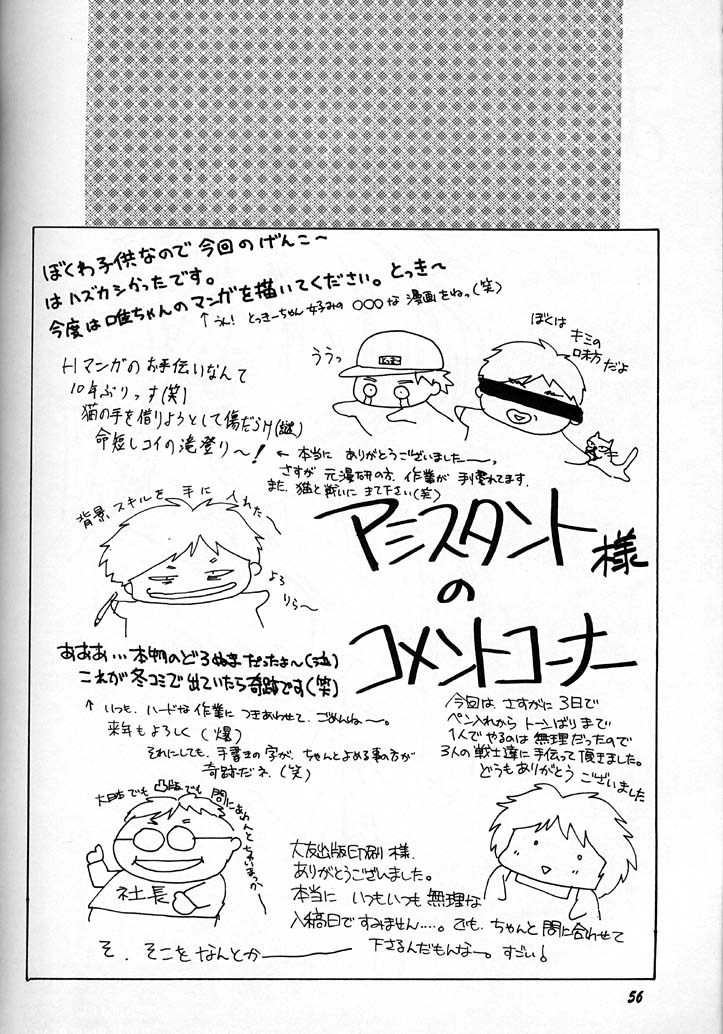 ぼくわ子供なので今回のげんこ〜
はハズカシかったです。
今度は唯ちゃんのマンガを描いてください。とっき〜
↑うん! とっきーちゃん好みの ○○○な 漫画をねっ(笑)
ううっ
ぼくは
キミの
味方だよ
Hマンガのお手伝いなんて
10年ぶりっす(笑)
猫の手を借りようとして傷だらけ(謎)
命短しコイの滝登り〜!
← 本当に ありがとうございました——っ
さすが 元漫研の方、作業が 手慣れてます。
また、猫と戦いに きて下さい(笑)
背景スキルを 手に 入れた〜
よろ
りら〜
アシスタント様
の
コメントコーナー
あああ…本物のどろぬまだったよ〜(泣)
これが冬コミで出ていたら奇跡です(笑)
↑ いつも、ハードな作業に つきあわせて、ごめんね〜。
来年もよろしく (爆)
それにしても、手書きの字が、ちゃんとよめる事の方が
奇跡だネ。(笑)
今回は、さすがに 3日で
ペン入れから トーンばりまで
1人でやるのは 無理だったので
3人の戦士達に 手伝って頂きました。
どうも ありがとう ございました
大日本でも 凸版でも 間にあわんとちゃいまっか〜
社長
大友出版印刷 様。
ありがとうございました。
本当に いつもいつも 無理な
入稿日ですみません……。でも、ちゃんと 間に合わせて
下さるんだもんなー。すごい!
そ、そこをなんとか———
56